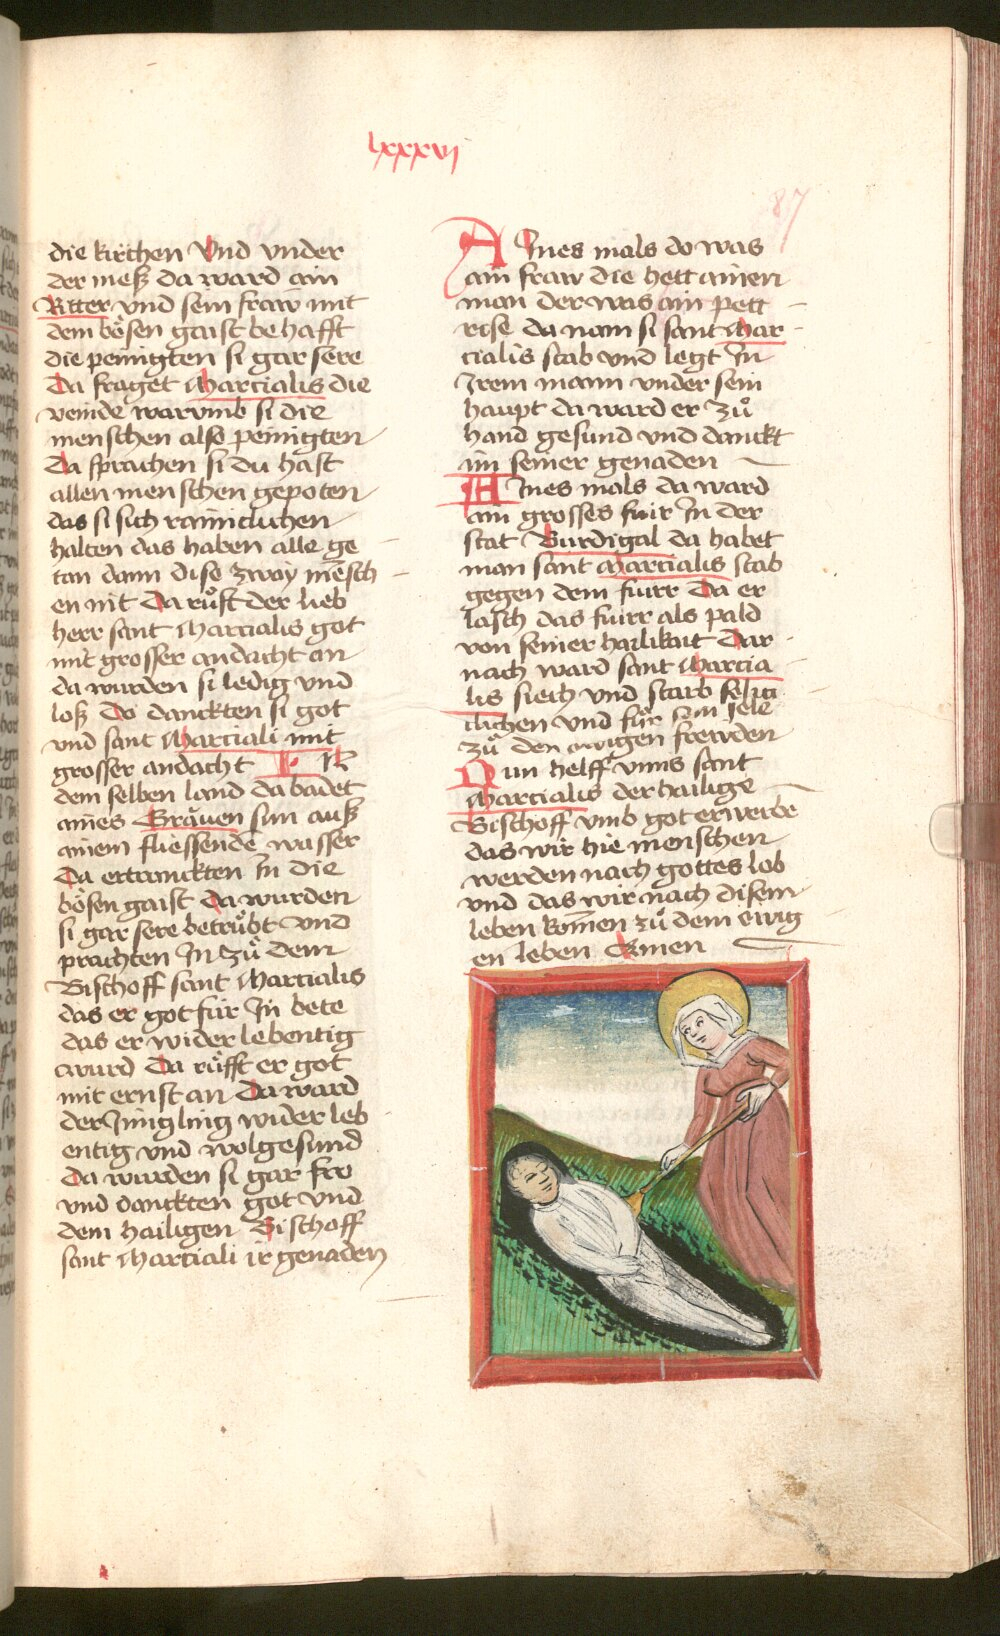 lxxxvj
87
die kirchen Vnd vnder
der meß da ward ain
Ritter vnd sein fraw mit
dem bösen gaist behafft
die peinigten si gar sere
Da fraget Marcialis die
veinde warvmb si die
menschen also peinigten
Da sprachen si du hast
allen menschen gepoten
das si sich rainiclichen
halten das haben alle ge
tan dann dise zway mēsch
en nit Da růft der lieb
herr sant Marcialis got
mit grosser andacht an
da wurden si ledig vnd
loß Do danckten si got
vnd sant Marciali mit
grosser andacht
dem selben land da badet
aines Gräuen sun auß
ainem fliessende wasser
Da ertranckten in die
bösen gaist da wurden
si gar sere betrůbt vnd
prachten In zů dem
Bischoff sant Marcialis
das er got für In bete
das er wider lebentig
wurd Da růfft er got
mit ernst an Da ward
der Jüngling wider leb
entig vnd wolgesund
Da wurden si gar fro
vnd danckten got vnd
dem hailigen Bischoff
sant Marciali ir genaden
AInes mals do was
ain fraw die hett ainen
man der was ain pett
rise da nam si sant Mar
cialis stab vnd legt In
Irem mann vnder sein
haupt da ward er zů
hand gesund vnd danckt
im seiner genaden
AInes mals da ward
ain grosses fuir In der
stat Burdigal da habet
man sant Marcialis stab
gegen dem fuirr Da er
lasch das fuirr als pald
von seiner hailikait Dar
nach ward sant Marcia
lis siech vnd starb selig
clichen vnd für sein sele
zů den ewigen frewden
Nun helff vnns sant
Marcialis der hailige
Bischoff vmb got erwerbe
das wir hie menschen
werden nach gottes lob
vnd das wir nach disem
leben komen zů dem ewig
en leben Amen